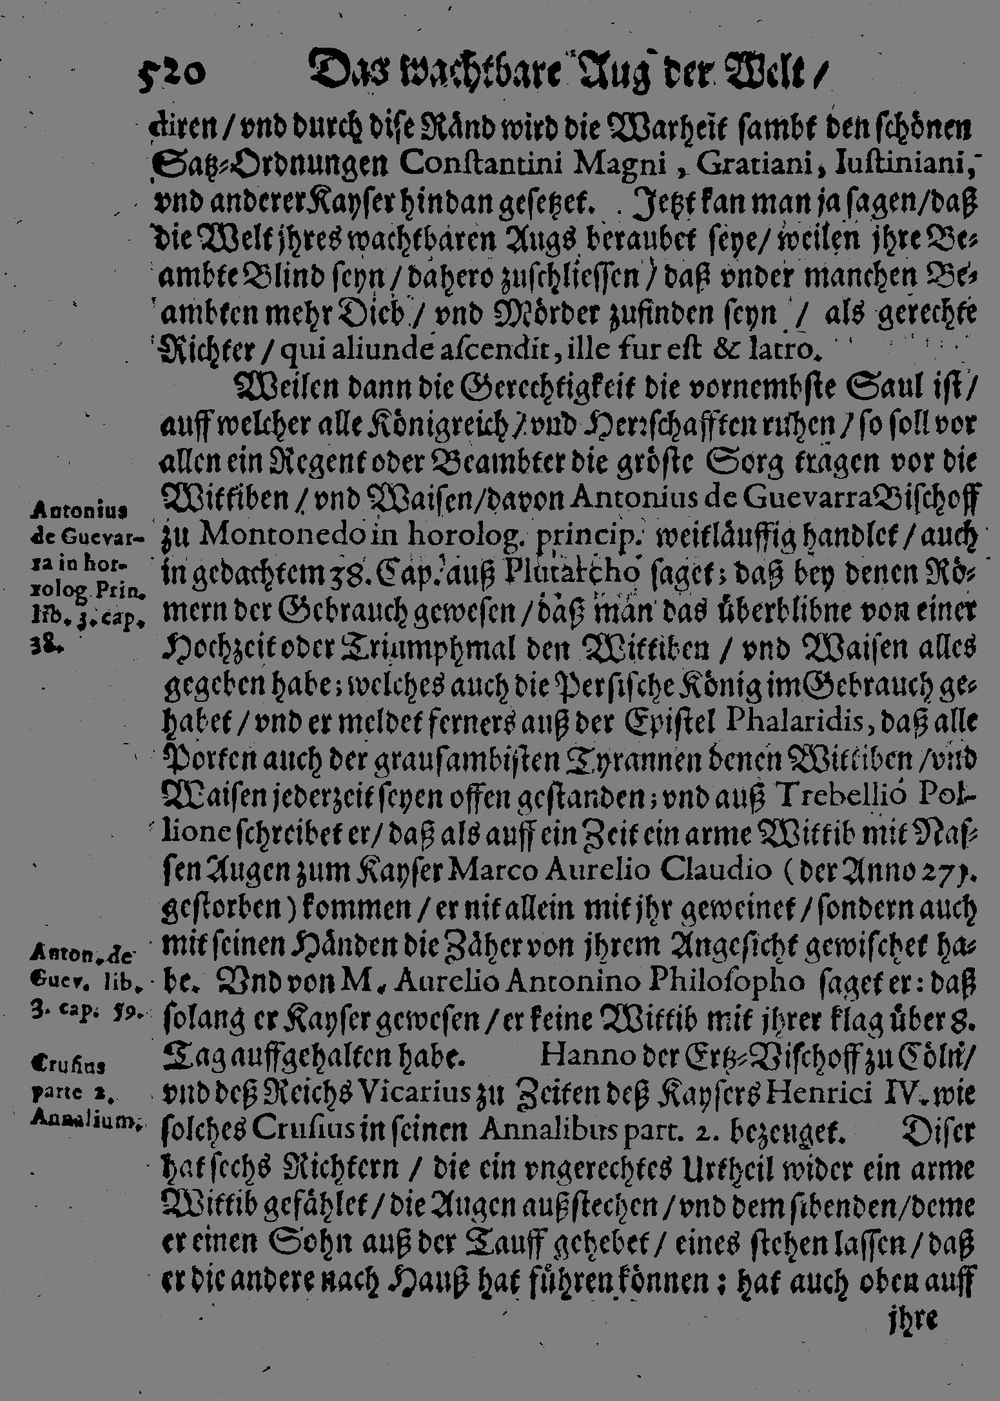 520 Das wachtbare Aug der Welt /
diren / vnd durch dise Ränd wird die Warheit sambt den schönen
Satz-Ordnungen Constantini Magni, Gratiani, Iustiniani,
vnd anderer Kayser hindan gesetzet. Jetzt kan man ja sagen / daß
die Welt jhres wachtbaren Augs beraubet seye / weilen jhre Be-
ambte Blind seyn / dahero zuschliessen / daß vnder manchen Be-
ambten mehr Dieb / vnd Mörder zufinden seyn / als gerechte
Richter / qui aliunde ascendit, ille fur est & latro.
Weilen dann die Gerechtigkeit die vornembste Saul ist /
auff welcher alle Königreich / vnd Herrschafften ruhen / so soll vor
allen ein Regent oder Beambter die gröste Sorg tragen vor die
Wittiben / vnd Waisen / davon Antonius de Guevarra Bischoff
zu Montonedo in horolog. princip. weitläuffig handlet / auch
in gedachtem 38. Cap. auß Plutarcho saget; daß bey denen Rö-
mern der Gebrauch gewesen / daß man das überblibne von einer
Hochzeit oder Triumphmal den Wittiben / vnd Waisen alles
gegeben habe; welches auch die Persische König im Gebrauch ge-
habet / vnd er meldet ferners auß der Epistel Phalaridis, daß alle
Porten auch der grausambisten Tyrannen denen Wittiben / vnd
Waisen jederzeit seyen offen gestanden; vnd auß Trebellio Pol-
lione schreibet er / daß als auff ein Zeit ein arme Wittib mit Nas-
sen Augen zum Kayser Marco Aurelio Claudio (der Anno 271.
gestorben) kommen / er nit allein mit jhr geweinet / sondern auch
mit seinen Händen die Zäher von jhrem Angesicht gewischet ha-
be. Vnd von M. Aurelio Antonino Philosopho saget er: daß
solang er Kayser gewesen / er keine Wittib mit jhrer klag über 8.
Tag auffgehalten habe. Hanno der Ertz-Bischoff zu Cöln /
vnd deß Reichs Vicarius zu Zeiten deß Kaysers Henrici IV. wie
solches Crusius in seinen Annalibus part. 2. bezeuget. Diser
hat sechs Richtern / die ein vngerechtes Urtheil wider ein arme
Wittib gefählet / die Augen außstechen / vnd dem sibenden / deme
er einen Sohn auß der Tauff gehebet / eines stehen lassen / daß
er die andere nach Hauß hat führen können: hat auch oben auff
jhre
Antonius
de Guevar-
ra in hor-
rolog. Prin.
lib. 3. cap.
38.
Anton. de
Guev. lib.
3. cap. 59.
Crusius
parte 2.
Annalium.